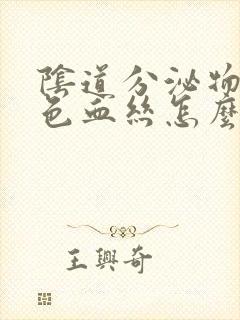 陰道分泌物
色血絲怎麼
王興奇